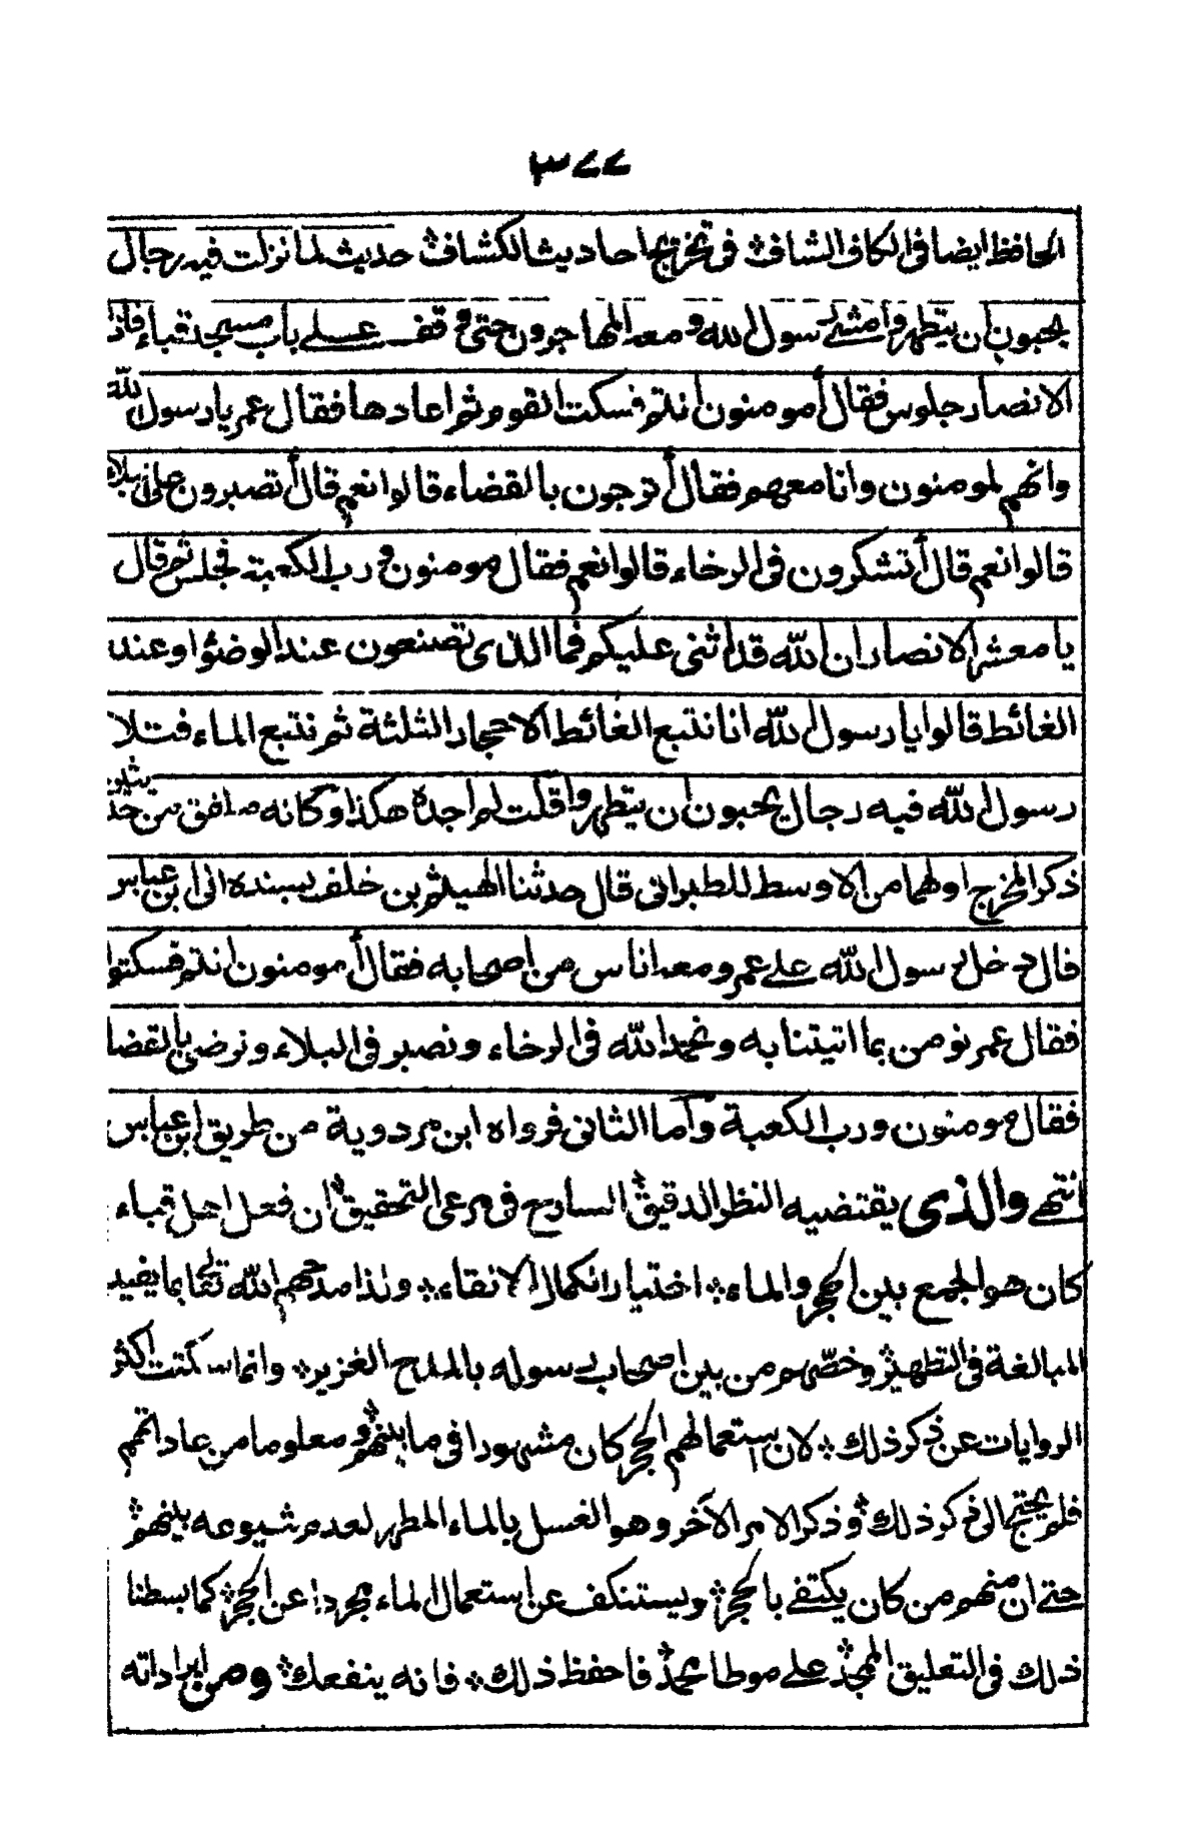 ٣٧٧
الحافظ ايضا فى الكاف الشاف فى تخريج احاديث الكشاف حديث لما نزلت فيه رجال
يحبون ان يتطهروا مشى رسول الله ومعه المهاجرون حتى وقف على باب مسجد قباء فاذا
الانصار جلوس فقال أمومنون انتم فسكت القوم ثم اعادها فقال عمر يا رسول الله
وانهم لمومنون وانا معهم فقال أترجون بالقضاء قالوا نعم قال أتصبرون على البلاء
قالوا نعم قال أتشكرون فى الرخاء قالوا نعم فقال مومنون ورب الكعبة فجلس ثم قال
يا معشر الانصار ان الله قد اثنى عليكم فما الذى تصنعون عند الوضوء او عند
الغائط قالوا يا رسول الله انا نتبع الغائط الاحجار الثلثة ثم نتبع الماء فتلا
رسول الله فيه رجال يحبون ان يتطهروا قلت لم اجده هكذا وكانه ملفق من حديثين
ذكر المخرج اولهما من الاوسط للطبرانى قال حدثنا الهيثم بن خلف بسنده الى ابن عباس
قال دخل رسول الله على عمر ومعه اناس من اصحابه فقال أمومنون انتم فسكتوا
فقال عمر نومن بما اتيتنا به ونحمد الله فى الرخاء ونصبر فى البلاء ونرضى بالقضا
فقال مومنون ورب الكعبة وأما الثانى فرواه ابن مردوية من طريق ابن عباس
انتهى والذى يقتضيه النظر الدقيق السارح فى مرعى التحقيق ان فعل اهل قباء
كان هو الجمع بين الحجر والماء اختيارا لكمال الانقاء ولذا مدحهم الله تعالى بما يفيد
المبالغة فى التطهير وخصّهم من بين اصحاب رسوله بالمدح الغزير وانما سكتت اكثر
الروايات عن ذكر ذلك لان استعمالهم الحجر كان مشهورا فى ما بينهم ومعلوما من عاداتهم
فلم يحتج الى ذكر ذلك وذكر الامر الآخر وهو الغسل بالماء المطهر لعدم شيوعه بينهم
حتى ان منهم من كان يكتفى بالحجر ويستنكف عن استعمال الماء مجردا عن الحجر كما بسطنا
ذلك فى التعليق الممجد على موطا محمد فاحفظ ذلك فانه ينفعك ومن ايراداته